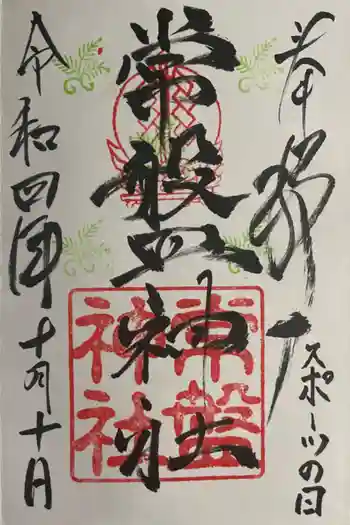 奉拝
スポーツの日
常盤神社
常磐
神社
令和四年十月十日